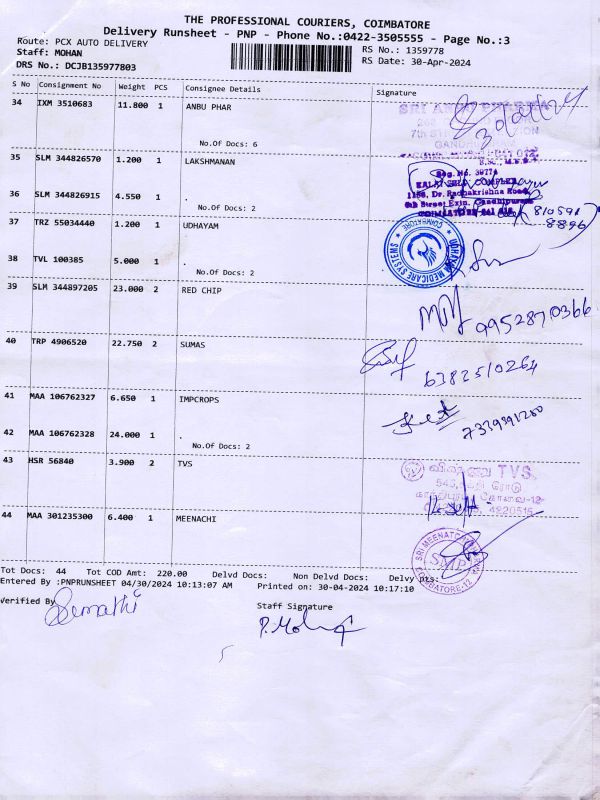 THE PROFESSIONAL COURIERS, COIMBATORE
Delivery Runsheet - PNP - Phone No.:0422-3505555 - Page No.:3
Route: PCX AUTO DELIVERY
RS No.: 1359778
Staff: MOHAN
RS Date: 30-Apr-2024
DRS No.: DCJB135977803
S No Consignment No Weight PCS Consignee Details Signature
34 IXM 3510683 11.800 1 ANBU PHAR
No.Of Docs: 6
35 SLM 344826570 1.200 1 LAKSHMANAN
36 SLM 344826915 4.550 1 .
No.Of Docs: 2
37 TRZ 55034440 1.200 1 UDHAYAM
38 TVL 100385 5.000 1 .
No.Of Docs: 2
39 SLM 344897205 23.000 2 RED CHIP
9952870366
40 TRP 4906520 22.750 2 SUMAS
6382510264
41 MAA 106762327 6.650 1 IMPCROPS
7339991200
42 MAA 106762328 24.000 1 .
No.Of Docs: 2
43 HSR 56840 3.900 2 TVS
TVS
44 MAA 301235300 6.400 1 MEENACHI
SMP
Tot Docs: 44 Tot COD Amt: 220.00 Delvd Docs: Non Delvd Docs: Delvy pts:
Entered By :PNPRUNSHEET 04/30/2024 10:13:07 AM Printed on: 30-04-2024 10:17:10
Verified By
Staff Signature
P. Mohan